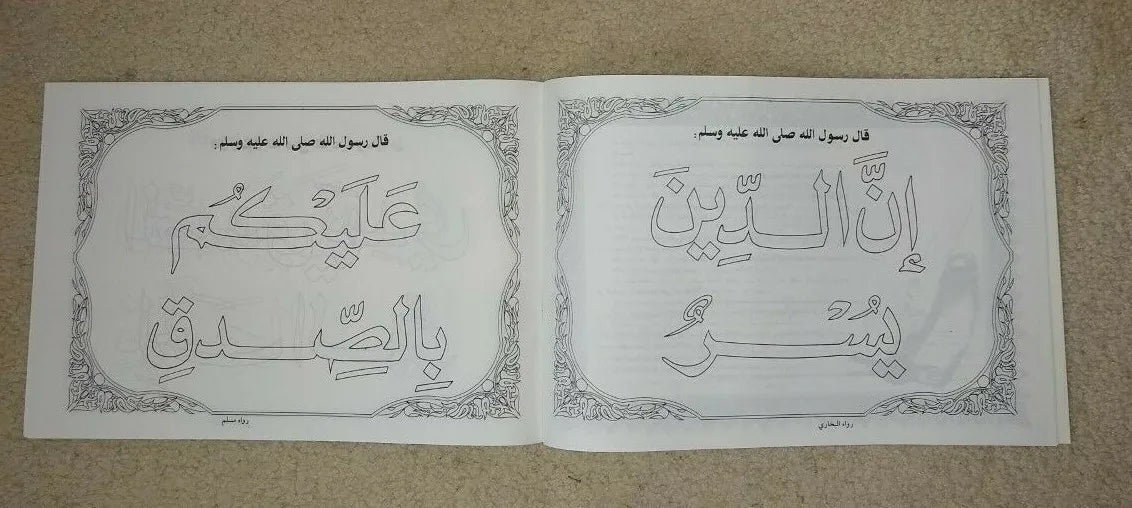 قال رسول الله صلى الله عليه وسلم :
إِنَّ الدِّينَ
يُسْرٌ
رواه البخاري
قال رسول الله صلى الله عليه وسلم :
عَلَيْكُم
بِالصِّدقِ
رواه مسلم